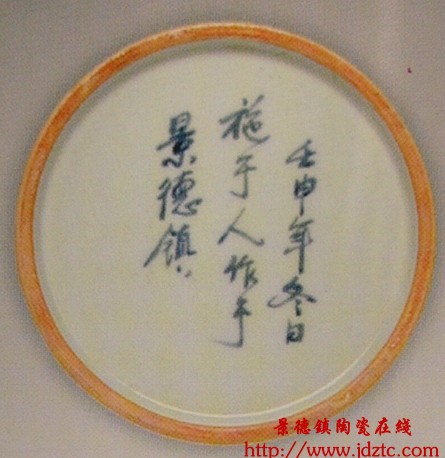 壬申年冬日
施于人作于
景德镇
景德鎮陶瓷在线
http://www.jdztc.com